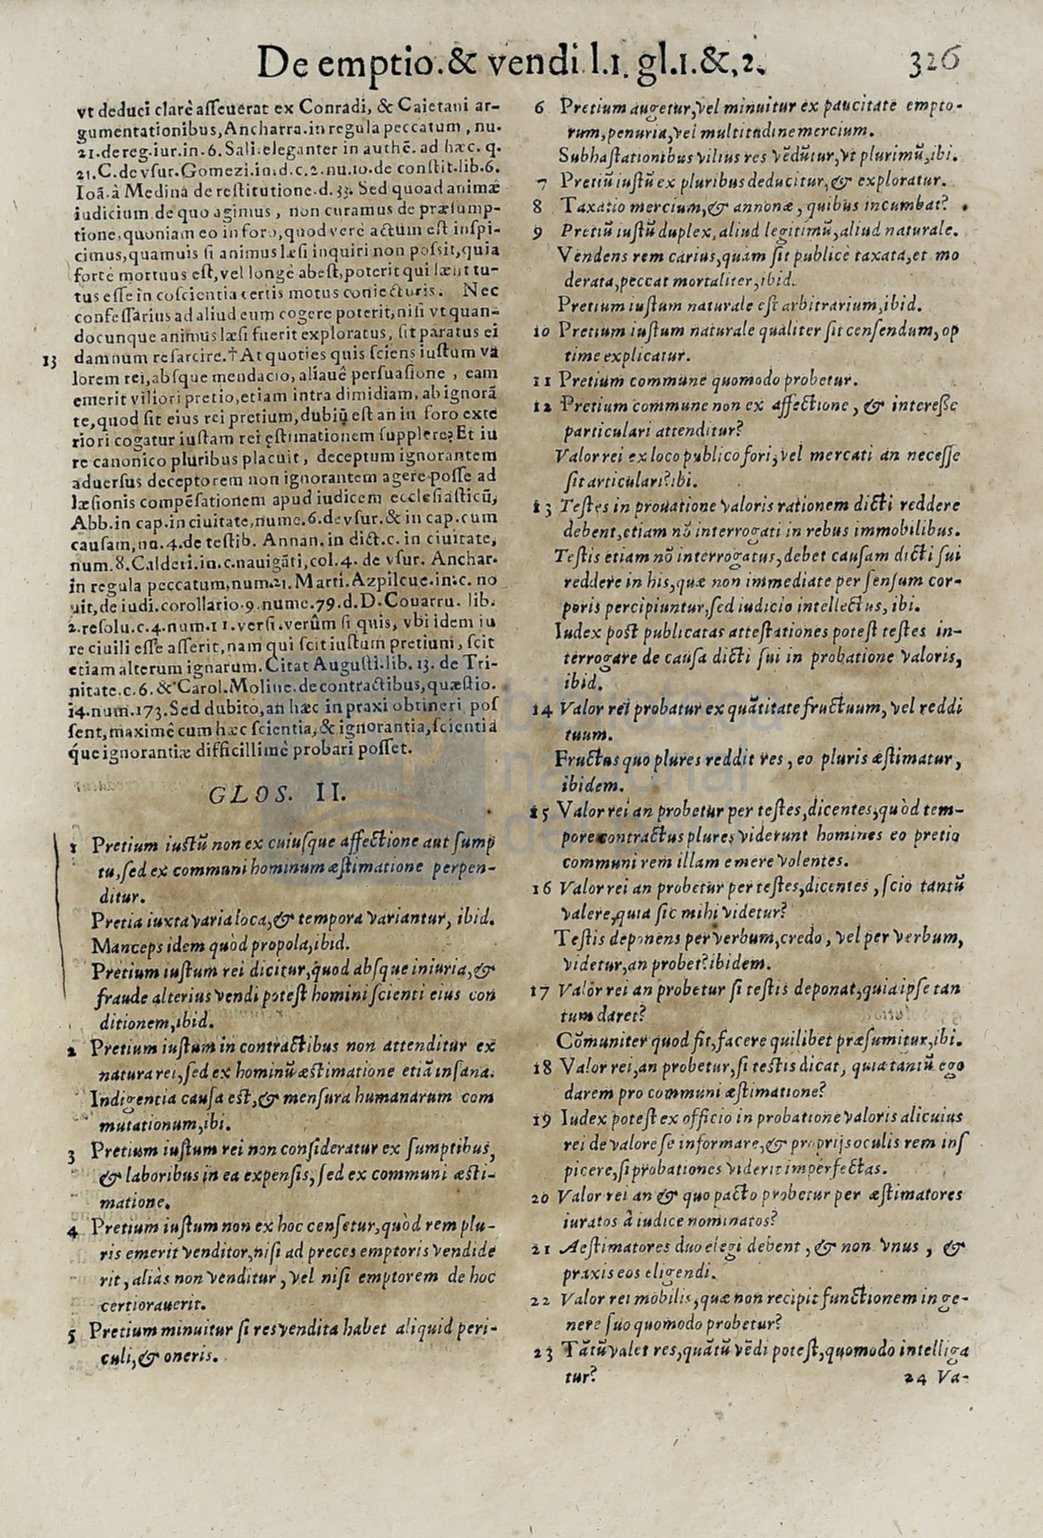 De emptio.& vendi l.1. gl.1.&.2. 326
vt deduci clarè asseuerat ex Conradi, & Caietani ar-
gumentationibus, Ancharra.in regula peccatum, nu.
21.de reg.iur.in.6.Sali.eleganter in authẽ. ad hæc. q.
21.C.de vsur.Gomezi.in.d.c.2.nu.10.de constit.lib.6.
Ioã.à Medina de restitutione.d.33. Sed quoad animæ
iudicium de quo agimus, non curamus de præsump-
tione, quoniam eo in foro, quod verè actum est inspi-
cimus, quamuis si animus læsi inquiri non possit, quia
fortè mortuus est, vel longè abest, poterit qui læsit tu-
tus esse in coscientia certis motus coniecturis. Nec
confessarius ad aliud eum cogere poterit, nisi vt quan-
docunque animus læsi fuerit exploratus, sit paratus ei
13 damnum resarcire.† At quoties quis sciens iustum va
lorem rei, absque mendacio, aliauè persuasione, eam
emerit viliori pretio, etiam intra dimidiam, ab ignorã
te, quod sit eius rei pretium, dubiũ est an in foro exte
riori cogatur iustam rei ęstimationem supplere? Et iu
re canonico pluribus placuit, deceptum ignorantem
aduersus deceptorem non ignorantem agere posse ad
læsionis compẽsationem apud iudicem ecclesiasticũ,
Abb.in cap.in ciuitate, nume.6.de vsur.& in cap.cum
causam, nu.4.de testib. Annan.in dict.c.in ciuitate,
num.8.Calderi.in.c.nauigãti, col.4. de vsur. Anchar.
in regula peccatum, num.21. Marti.Azpilcue.in.c. no
uit, de iudi.corollario.9.nume.79.d.D.Couarru. lib.
2.resolu.c.4.num.11.versi.verûm si quis, vbi idem iu
re ciuili esse asserit, nam qui scit iustum pretium, scit
etiam alterum ignarum. Citat Augusti.lib. 13. de Tri-
nitate.c.6.& Carol.Moline.de contractibus, quæstio.
14.num.173. Sed dubito, an hæc in praxi obtineri pos
sent, maximè cum hæc scientia, & ignorantia, scientia
q́ue ignorantiæ difficillimè probari posset.
GLOS. II.
1 Pretium iustũ non ex cuiusque affectione aut sump
tu, sed ex communi hominum æstimatione perpen-
ditur.
Pretia iuxta varia loca, & tempora variantur, ibid.
Manceps idem quod propola, ibid.
Pretium iustum rei dicitur, quod absque iniuria, &
fraude alterius vendi potest homini scienti eius con
ditionem, ibid.
2 Pretium iustum in contractibus non attenditur ex
natura rei, sed ex hominũ æstimatione etiã insana.
Indigentia causa est, & mensura humanarum com
mutationum, ibi.
3 Pretium iustum rei non consideratur ex sumptibus,
& laboribus in ea expensis, sed ex communi æsti-
matione.
4 Pretium iustum non ex hoc censetur, quòd rem plu-
ris emerit venditor, nisi ad preces emptoris vendide
rit, aliàs non venditur, vel nisi emptorem de hoc
certiorauerit.
5 Pretium minuitur si res vendita habet aliquid peri-
culi, & oneris.
6 Pretium augetur, vel minuitur ex paucitate empto-
rum, penuria, vel multitudine mercium.
Subhastationibus vilius res vẽdũtur, vt plurimũ, ibi.
7 Pretiũ iustũ ex pluribus deducitur, & exploratur.
8 Taxatio mercium, & annonæ, quibus incumbat?
9 Pretiũ iustũ duplex, aliud legitimũ, aliud naturale.
Vendens rem carius, quàm sit publicè taxata, et mo
derata, peccat mortaliter, ibid.
Pretium iustum naturale est arbitrarium, ibid.
10 Pretium iustum naturale qualiter sit censendum, op
time explicatur.
11 Pretium commune quomodo probetur.
12 Pretium commune non ex affectione, & interesse
particulari attenditur?
Valor rei ex loco publico fori, vel mercati an necesse
sit articulari? ibi.
13 Testes in probatione valoris rationem dicti reddere
debent, etiam nõ interrogati in rebus immobilibus.
Testis etiam nõ interrogatus, debet causam dicti sui
reddere in his, quæ non immediate per sensum cor-
poris percipiuntur, sed iudicio intellectus, ibi.
Iudex post publicatas attestationes potest testes in-
terrogare de causa dicti sui in probatione valoris,
ibid.
14 Valor rei probatur ex quãtitate fructuum, vel reddi
tuum.
Fructus quo plures reddit res, eo pluris æstimatur,
ibidem.
15 Valor rei an probetur per testes, dicentes, quòd tem-
pore contractus plures viderunt homines eo pretio
communi rem illam emere volentes.
16 Valor rei an probetur per testes, dicentes, scio tantũ
valere, quia sic mihi videtur?
Testis deponens per verbum, credo, vel per verbum,
videtur, an probet? ibidem.
17 Valor rei an probetur si testis deponat, quia ipse tan
tum daret?
Cõmuniter quod fit, facere quilibet præsumitur, ibi.
18 Valor rei, an probetur, si testis dicat, quia tantũ ego
darem pro communi æstimatione?
19 Iudex potest ex officio in probatione valoris alicuius
rei de valore se informare, & proprijs oculis rem ins
picere, si probationes viderit imperfectas.
20 Valor rei an & quo pacto probetur per æstimatores
iuratos à iudice nominatos?
21 Aestimatores duo elegi debent, & non vnus, &
praxis eos eligendi.
22 Valor rei mobilis, quæ non recipit functionem in ge-
nere suo quomodo probetur?
23 Tãtũ valet res, quãtũ vẽdi potest, quomodo intelliga
tur? 24 Va-